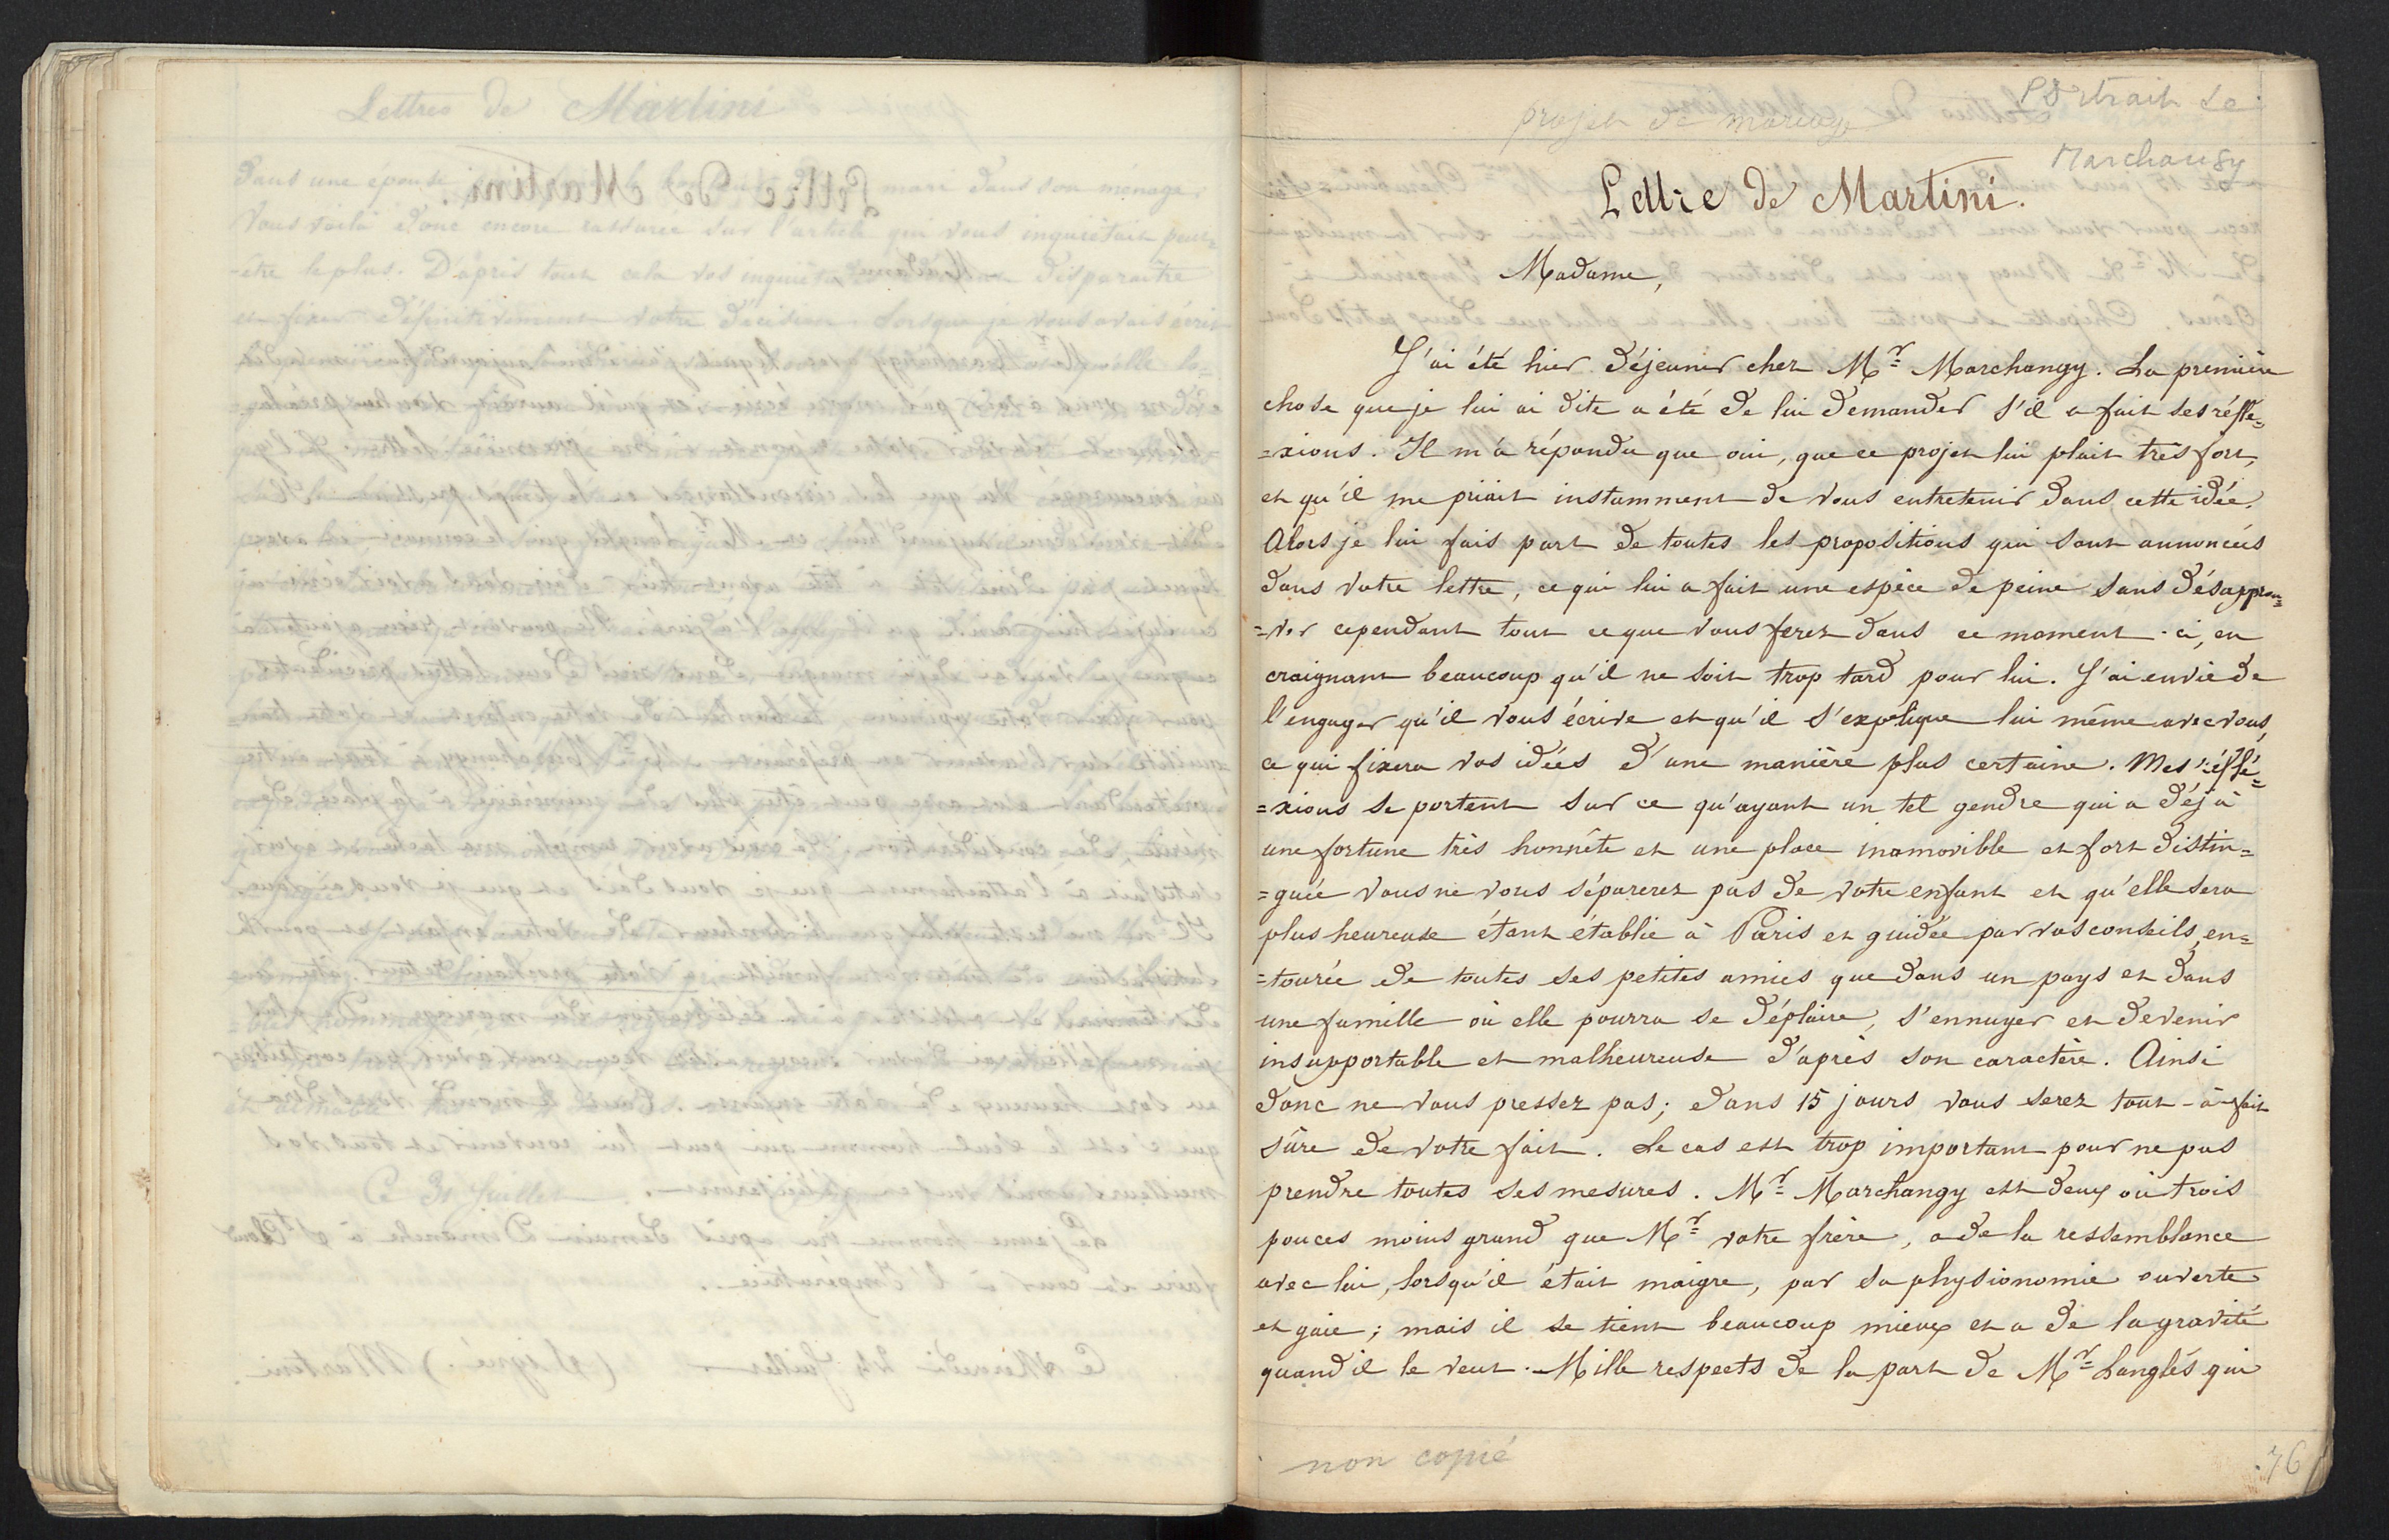 Portrait de
projet de mariage
Marchangy
Lettre de Martini.
Madame,
J'ai été hier déjeuner chez Mr Marchangy. La première
chose que je lui ai dite a été de lui demander s'il a fait ses réfle=
=xions. Il m'a répondu que oui, que ce projet lui plait très fort,
et qu'il me priait instamment de vous entretenir dans cette idée.
Alors je lui fais part de toutes les propositions qui sont annoncées
dans votre lettre, ce qui lui a fait une espèce de peine sans désapprou=
=ver cependant tout ce que vous ferez dans ce moment-ci, en
craignant beaucoup qu'il ne soit trop tard pour lui. J'ai envie de
l'engager qu'il vous écrive et qu'il s'explique lui même avec vous,
ce qui fixera vos idées d'une manière plus certaine. Mes réflé=
=xions se portent sur ce qu'ayant un tel gendre qui a déjà
une fortune très honnête et une place inamovible et fort distin=
=guée vous ne vous séparerez pas de votre enfant et qu'elle sera
plus heureuse étant établie à Paris et guidée par vos conseils, en=
=tourée de toutes ses petites amies que dans un pays et dans
une famille où elle pourra se déplaire, s'ennuyer et devenir
insupportable et malheureuse d'après son caractère. Ainsi
donc ne vous pressez pas; dans 15 jours vous serez tout-à-fait
sûre de votre fait. Le cas est trop important pour ne pas
prendre toutes ses mesures. Mr Marchangy est deux où trois
pouces moins grand que Mr votre frère, a de la ressemblance
avec lui, lorsqu'il était maigre, par sa physionomie ouverte
et gaie; mais il se tient beaucoup mieux et a de la gravité
quand il le veut. Mille respects de la part de Mr Langlés qui
non copié
76